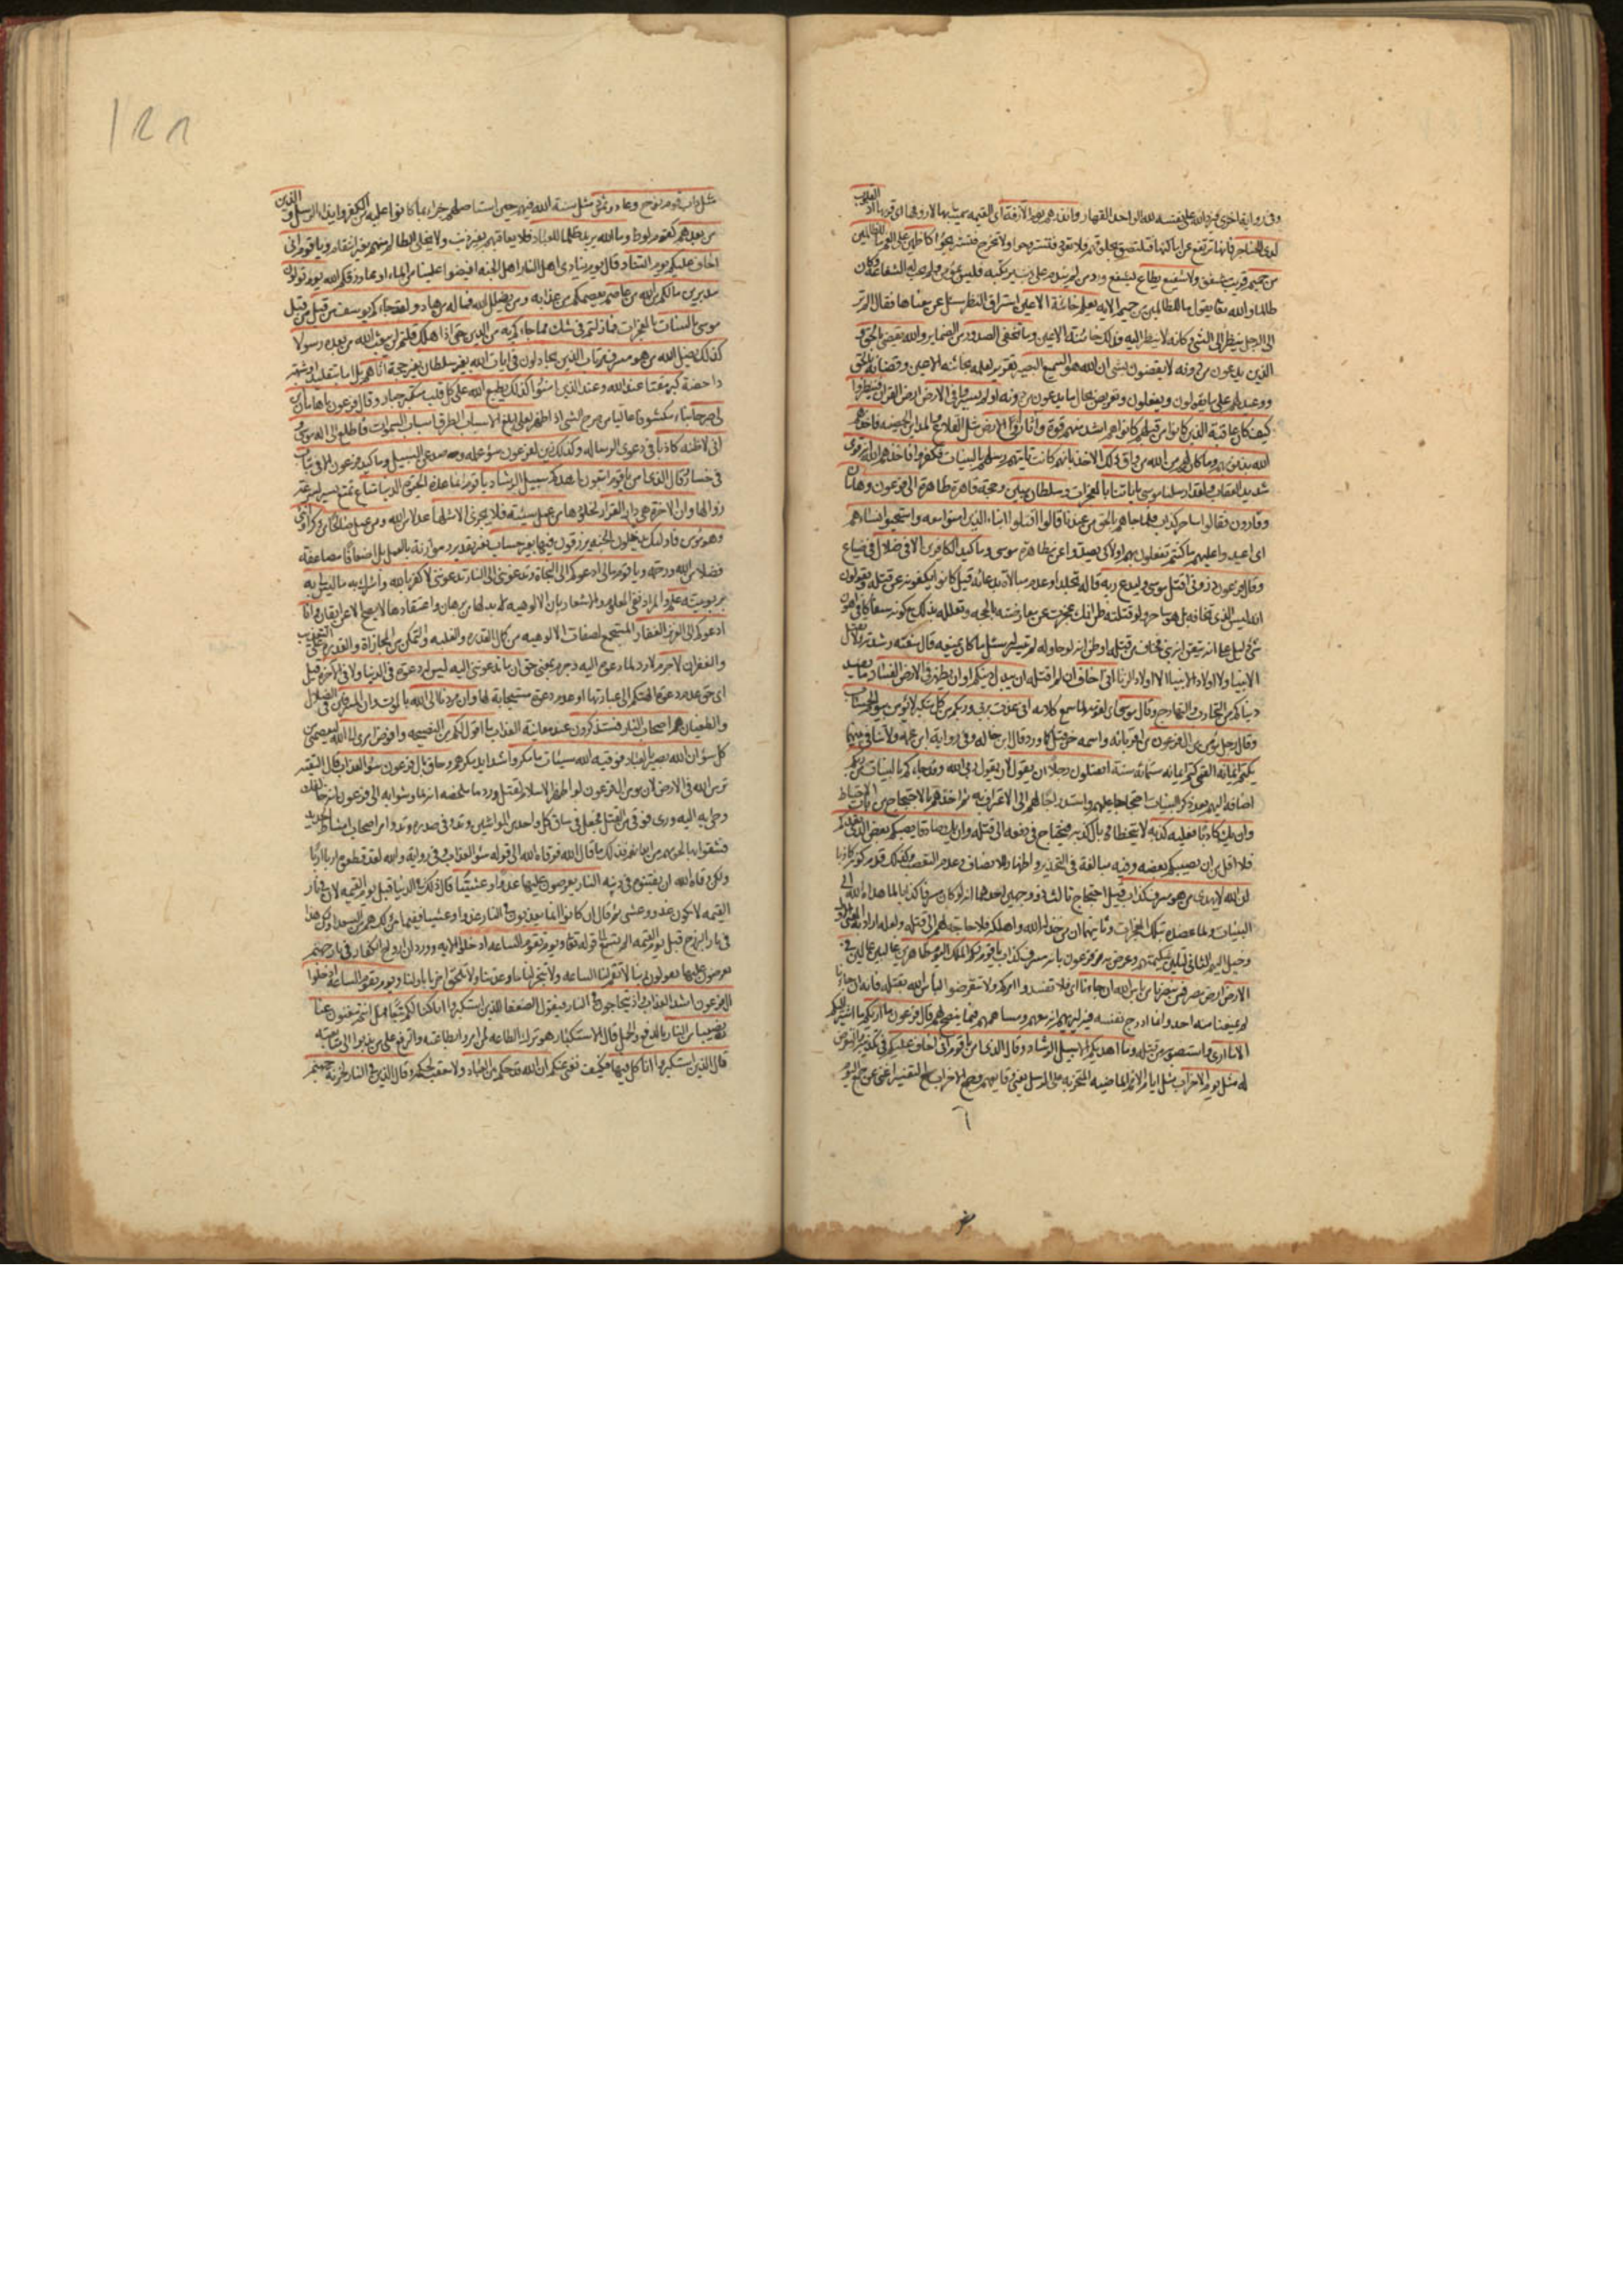 وفي رواية اخرى فيرد الله على نفسه لله الواحد القهار وانذرهم يوم الازفة اي القيمة سميت بها لازوفها اي قربها اذ القلوب
لدى الحناجر فانها ترتفع عن اماكنها فتلتصق بحلوقهم فلا تعود فتستروحوا ولا تخرج فتستريحوا كاظمين على الغم ما للظالمين
من حميم قريب مشفق ولا شفيع يطاع ليشفع ورد من لم يندم على ذنب يرتكبه فليس بمؤمن ولم تجب له الشفاعة وكان
ظالما والله تعالى يقول ما للظالمين من حميم الاية يعلم خائنة الاعين استراق النظر سئل عن معناها فقال الم تر
الى الرجل ينظر الى الشئ وكانه لا ينظر اليه فذلك خائنة الاعين وما تخفي الصدور من الضماير والله يقضي بالحق و
الذين يدعون من دونه لا يقضون بشئ ان الله هو السميع البصير تقرير لعلمه بخائنة الاعين وقضائه بالحق
ووعيد لهم على ما يقولون ويفعلون وتعريض بحال ما يدعون من دونه اولم يسيروا في الارض فينظروا
كيف كان عاقبة الذين كانوا من قبلهم كانوا هم اشد منهم قوة واثارا في الارض مثل القلاع والمداين الحصينة فاخذهم
الله بذنوبهم وما كان لهم من الله من واق ذلك الاخذ بانهم كانت تاتيهم رسلهم بالبينات فكفروا فاخذهم الله انه قوي
شديد العقاب ولقد ارسلنا موسى باياتنا بالمعجزات وسلطان مبين وحجة قاهرة ظاهرة الى فرعون وهامان
وقارون فقالوا ساحر كذاب فلما جاءهم بالحق من عندنا قالوا اقتلوا ابناء الذين امنوا معه واستحيوا نساءهم
اي اعيدوا عليهم ما كنتم تفعلون بهم اولا كي يصدوا عن مظاهرة موسى وما كيد الكافرين الا في ضلال في ضياع
وقال فرعون ذروني اقتل موسى وليدع ربه قاله تجلدا وعدم مبالاة بدعائه قيل كانوا يكفونه عن قتله ويقولون
انه ليس الذي تخافه بل هو ساحر ولو قتلته ظن انك عجزت عن معارضته بالحجة وتعلله بذلك مع كونه سفاكا في اهون
شئ دليل على انه تيقن انه نبي فخاف من قتله
الانبيا ولا اولاد الانبيا الا اولاد الزنا اني اخاف ان لم اقتله ان يبدل دينكم او ان يظهر في الارض الفساد ما يفسد
دنياكم من التحارب والتهارج وقال موسى اي لقومه لما سمع كلامه اني عذت بربي وربكم من كل متكبر لا يؤمن بيوم الحساب
وقال رجل مؤمن من ال فرعون من اقربائه
يكتم ايمانه القمي كتم ايمانه ستمائة سنة اتقتلون رجلا ان يقول لان يقول ربي الله وقد جاءكم بالبينات من ربكم
اضافه اليهم بعد ذكر البينات احتجاجا عليهم واستدراجا لهم الى الاعتراف به ثم اخذهم بالاحتجاج من باب الاحتياط
وان يك كاذبا فعليه كذبه لا يتخطاه وبال كذبه فيحتاج في دفعه الى قتله وان يك صادقا يصبكم بعض الذي يعدكم
فلا اقل من ان يصيبكم بعضه وفيه مبالغة في التحذير واظهار للانصاف وعدم التعصب ولذلك قدم كونه كاذبا
ان الله لا يهدي من هو مسرف كذاب قيل احتجاج ثالث ذو وجهين احدهما انه لو كان مسرفا كذابا لما هداه الله الى
البينات ولما عضده بتلك المعجزات وثانيهما ان من خذله الله واهلكه فلا حاجة لهم الى قتله ولعله اراد به المعنى الاول
وخيل اليهم الثاني لتلين شكيمتهم وعرض به فرعون بانه مسرف كذاب يا قوم لكم الملك اليوم ظاهرين غالبين عالين في
الارض ارض مصر فمن ينصرنا من باس الله ان جاءنا اي فلا تفسدوا امركم ولا تتعرضوا لباس الله بقتله فانه ان جاءنا
لم يمنعنا منه احد وانما ادرج نفسه فيه ليريهم انه معهم ومساهمهم فيما ينصح لهم قال فرعون ما اريكم ما اشير اليكم
الا ما ارى واستصوبه من قتله وما اهديكم الا سبيل الرشاد وقال الذي امن يا قوم اني اخاف عليكم في تكذيبه والتعرض
له مثل يوم الاحزاب مثل ايام الامم الماضية المتحزبة على الرسل يعني وقايعهم وجمع الاحزاب مع التفسير اغنى عن جمع اليوم
مثل داب قوم نوح وعاد وثمود مثل سنة الله فيهم حين استاصلهم جزاء بما كانوا عليه من الكفر وايذاء الرسل والذين
من بعدهم كقوم لوط وما الله يريد ظلما للعباد فلا يعاقبهم بغير ذنب ولا يخلي الظالم منهم بغير انتقام ويا قوم اني
اخاف عليكم يوم التناد قال يوم ينادي اهل النار اهل الجنة افيضوا علينا من الماء او مما رزقكم الله يوم تولون
مدبرين ما لكم من الله من عاصم يعصمكم من عذابه ومن يضلل الله فما له من هاد ولقد جاءكم يوسف من قبل من قبل
موسى بالبينات بالمعجزات فما زلتم في شك مما جاءكم به من الدين حتى اذا هلك قلتم لن يبعث الله من بعده رسولا
كذلك يضل الله من هو مسرف مرتاب الذين يجادلون في ايات الله بغير سلطان بغير حجة اتاهم بل اما بتقليد او شبهة
داحضة كبر مقتا عند الله وعند الذين امنوا كذلك يطبع الله على كل قلب متكبر جبار وقال فرعون يا هامان ابن
لي صرحا بناء مكشوفا عاليا من صرح الشئ اذا ظهر لعلي ابلغ الاسباب الطرق اسباب السموات فاطلع الى اله موسى و
اني لاظنه كاذبا في دعوى الرسالة وكذلك زين لفرعون سوء عمله وصد عن السبيل وما كيد فرعون الا في تباب
في خسار وقال الذي امن يا قوم اتبعون اهدكم سبيل الرشاد يا قوم انما هذه الحيوة الدنيا متاع تمتع يسير لسرعة
زوالها وان الاخرة هي دار القرار لخلودها من عمل سيئة فلا يجزى الا مثلها عدلا من الله ومن عمل صالحا من ذكر او انثى
وهو مؤمن فاولئك يدخلون الجنة يرزقون فيها بغير حساب بغير تقدير وموازنة بالعمل بل اضعافا مضاعفة
فضلا من الله ورحمة ويا قوم مالي ادعوكم الى النجاة وتدعونني الى النار تدعونني لاكفر بالله واشرك به ما ليس لي به
بربوبيته علم والمراد نفي المعلوم والاشعار بان الالوهية لابد لها من برهان واعتقادها لا يصح الا عن ايقان وانا
ادعوكم الى العزيز الغفار المستجمع لصفات الالوهية من كمال القدرة والغلبة والتمكن من المجازاة والقدرة على التعذيب
والغفران لا جرم لا رد لما دعوه اليه وجرم بمعنى حق ان ما تدعونني اليه ليس له دعوة في الدنيا ولا في الاخرة قيل
اي حق عدم دعوة الهتكم الى عبادتها او عدم دعوة مستجابة لها وان مردنا الى الله بالموت وان المسرفين في الضلال
والطغيان هم اصحاب النار فستذكرون عند معاينة العذاب ما اقول لكم من النصيحة وافوض امري الى الله ليعصمني من
كل سوء ان الله بصير بالعباد فوقيه الله سيئات ما مكروا شدايد مكرهم وحاق بال فرعون سوء العذاب قال التقية
ترس الله في الارض لان مؤمن ال فرعون لو اظهر الاسلام لقتل وورد ما ملخصه
وجئ به اليه
فشقوا بها لحومهم من ابدانهم فذلك ما قال الله فوقاه الله الى قوله سوء العذاب وفي رواية والله لقد قطعوه اربا اربا
ولكن وقاه الله ان يفتنوه في دينه النار يعرضون عليها غدوا وعشيا قال ذلك في الدنيا قبل يوم القيمة لان في نار
القيمة لا يكون غدو وعشي ثم قال ان كانوا انما يعذبون في النار غدوا وعشيا ففيما بين ذلك هم من السعداء ولكن هذا
في نار البرزخ قبل يوم القيمة الم تسمع الى قوله تعالى ويوم تقوم الساعة ادخلوا الاية وورد ان ارواح الكفار في نار جهنم
يعرضون عليها يقولون ربنا لا تقم لنا الساعة ولا تنجز لنا ما وعدتنا ولا تلحق اخرنا باولنا ويوم تقوم الساعة ادخلوا
ال فرعون اشد العذاب واذ يتحاجون في النار فيقول الضعفا للذين استكبروا انا كنا لكم تبعا فهل انتم مغنون عنا
نصيبا من النار بالدفع والحمل قال الاستكبار هو ترك الطاعة لمن امروا بطاعته والترفع على من ندبوا الى متابعته
قال الذين استكبروا انا كل فيها فكيف نغني عنكم ان الله قد حكم بين العباد ولا معقب لحكمه وقال الذين في النار لخزنة جهنم